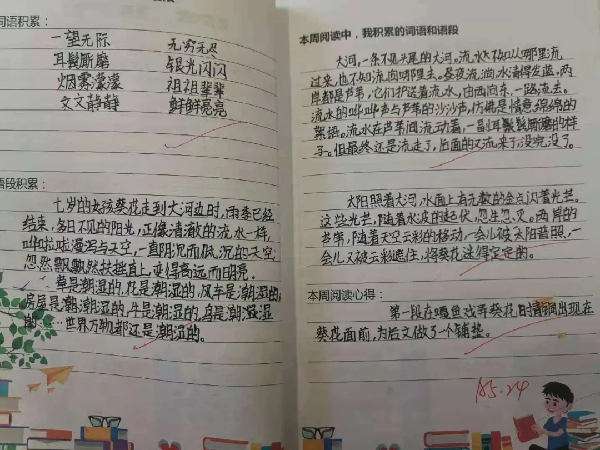 词语积累：
一望无际 无穷无尽
耳鬓厮磨 银光闪闪
烟雾濛濛 祖祖辈辈
文文静静 鲜鲜亮亮
语段积累：
七岁的女孩葵花走到大河边时，雨季已经
结束，多日不见的阳光，正像清澈的流水一样，
哗啦啦漫泻与天空，一直阴沉而低沉的天空，
忽然飘飘然扶摇直上，变得高远而明亮。
草是潮湿的，花是潮湿的，风车是潮湿的，
房屋是潮湿的，牛是潮湿的，鸟是潮湿
的……世界万物都还是潮湿的。
本周阅读中，我积累的词语和语段
大河，一条不见头尾的大河。流水不知从哪里流
过来，也不知流向哪里去。昼夜流淌，水清得发蓝，两
岸都是芦苇，它们护送着流水，由西向东，一路流去。
流水的哗哗声与芦苇的沙沙声，仿佛是情意绵绵的
絮语。流水在芦苇间流动着，一副耳鬓厮磨的样
子。但最终还是流走了，后面的又流来了，没完没了。
太阳照着大河，水面上有无数的金点闪着光芒。
这些光芒，随着水波的起伏，忽生忽灭。两岸的
芦苇，随着天空云彩的移动，一会儿被太阳普照，一
会儿又被云彩遮住，将葵花迷得定定的。
本周阅读心得：
第一段在嘎鱼戏弄葵花时青铜出现在
葵花面前，为后文做了个铺垫。